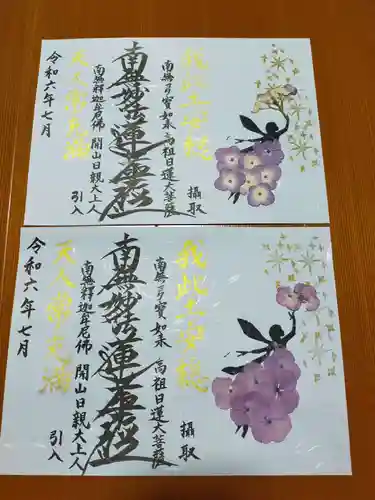 我此土安穏
南無多寶如来 高祖日蓮大菩薩
攝取
南無妙法蓮華経
南無釋迦牟尼佛 開山日親大上人
引入
天人常充満
令和六年七月
我此土安穏
南無多寶如来 高祖日蓮大菩薩
攝取
南無妙法蓮華経
南無釋迦牟尼佛 開山日親大上人
引入
天人常充満
令和六年七月